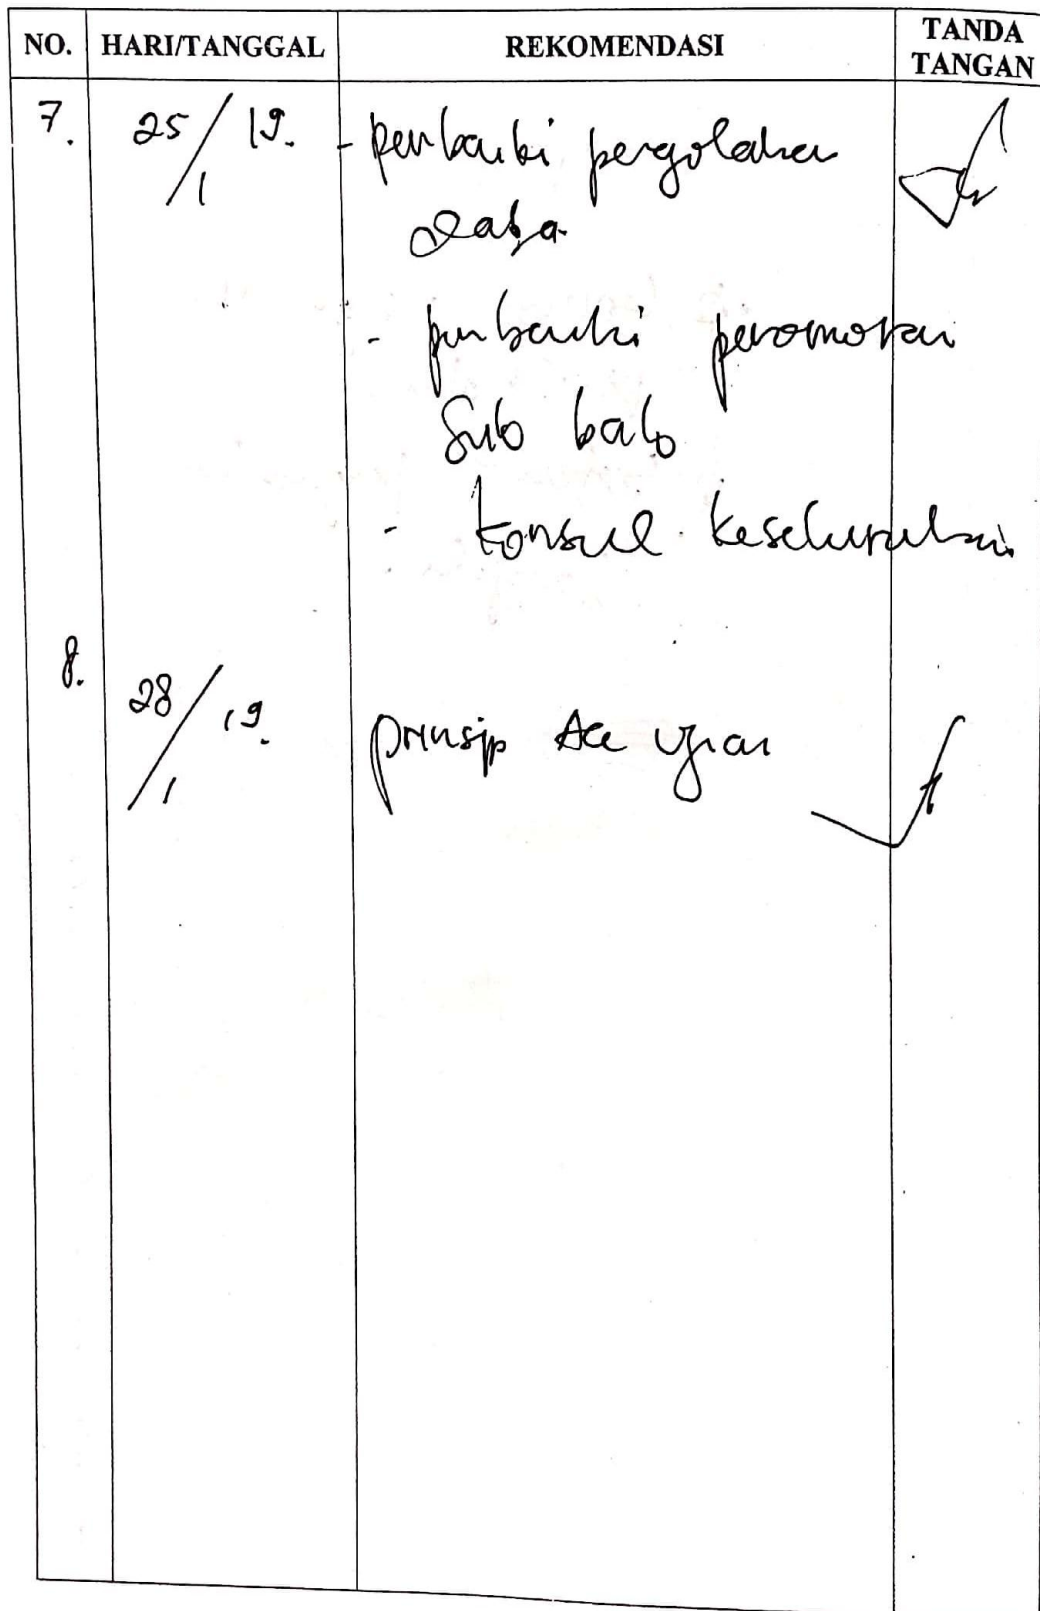 NO. HARI/TANGGAL REKOMENDASI TANDA TANGAN
7. 25/1 19. - perbaiki pengolahan
data
- perbaiki penomoran
Sub bab
- konsul keseluruhan
8. 28/1 19. prinsip Acc ujian